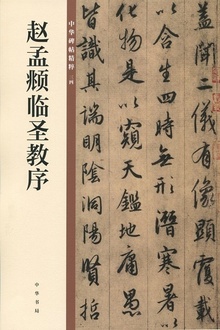 中华碑帖精粹
赵孟𫖯临圣教序
中华书局
盖聞二儀有像顯覆載
以含生四時無形潛寒暑以
化物是以窺天鑑地庸愚
皆識其端明陰洞陽賢哲